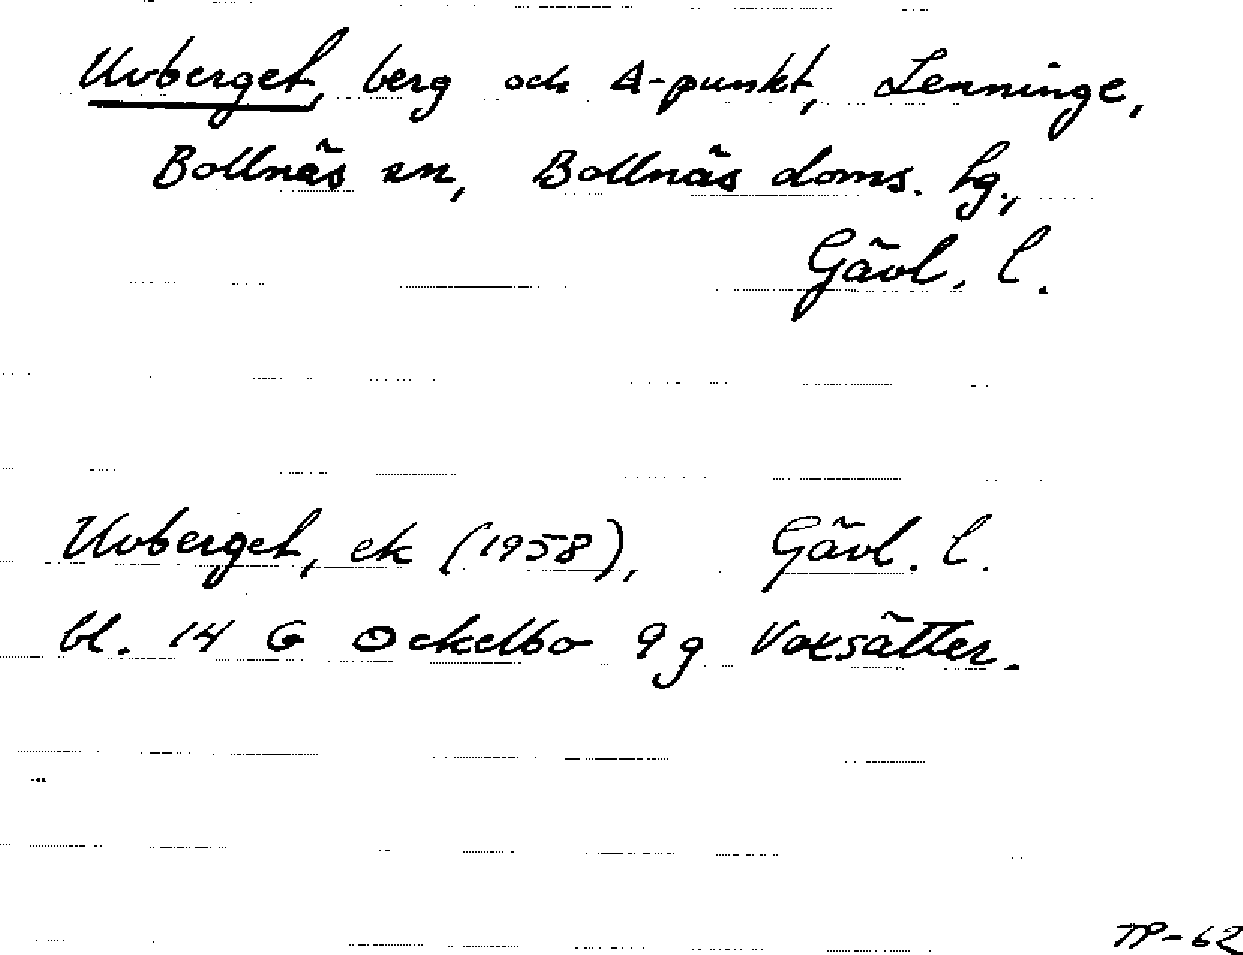 Uvberget, berg och Δ-punkt, Lenninge,
Bollnäs sn, Bollnäs doms. hg.,
Gävl. l.
Uvberget, ek (1958), Gävl. l.
bl. 14 G Ockelbo 9g Voxsätter.
TP-62